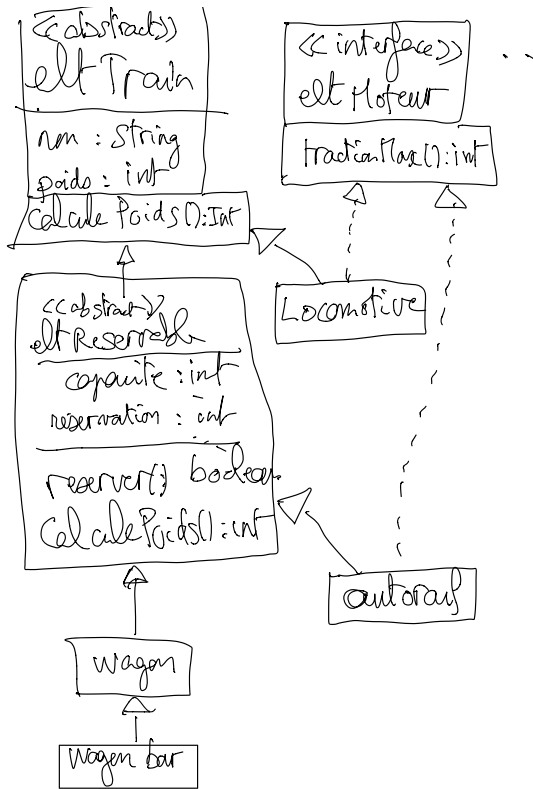 <<abstract>>
elt Train
nm : String
poids : int
Calcule Poids():Int
<< interface>>
elt Moteur
tractionMax():int
Locomotive
<<abstract>>
elt Reservable
capacite : int
réservation : int
reserver() boolean
CalculePoids():int
autorail
wagon
wagon bar